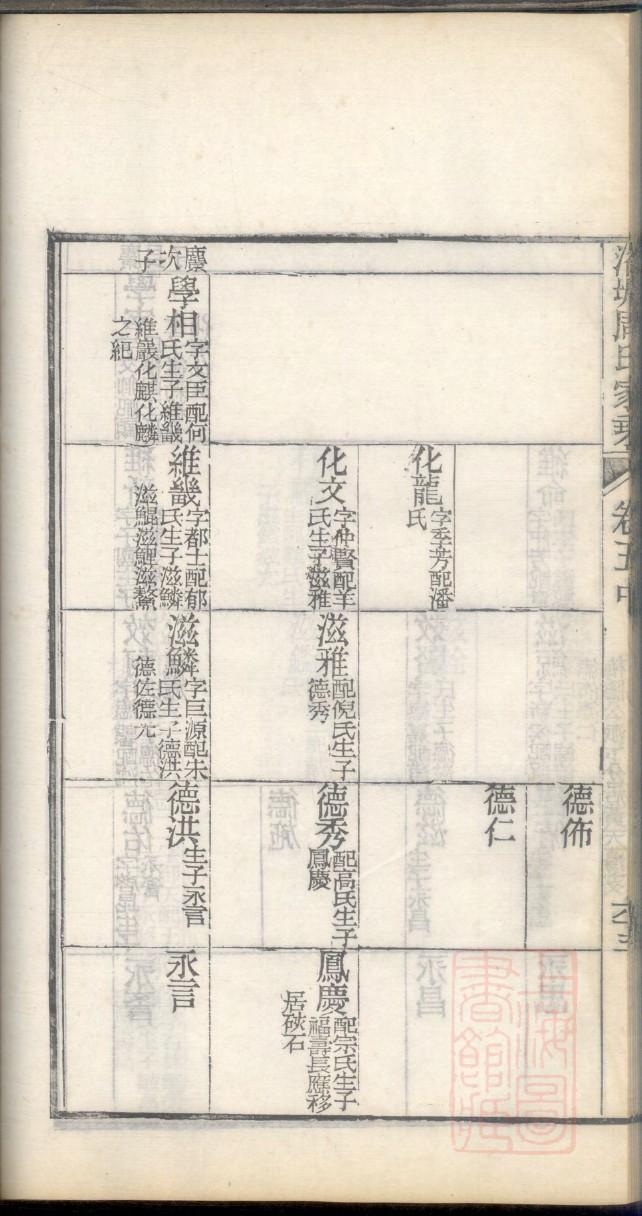 周氏家乘
卷五中
德佈
德仁
化龍 字季芳配潘
氏
化文 字仲賢配羊
氏生子滋雅
滋雅 配倪氏生子
德秀
德秀 配高氏生子
鳳慶
鳳慶 配宗氏生子
福壽長應移
居硤石
麇次子
學相 字文臣配何
氏生子維畿
維巖化麒化麟
之紀
維畿 字都士配郁
氏生子滋鱗
滋鯤滋鯉滋鰲
滋鱗 字巨源配朱
氏生子德洪
德佐德元
德洪 生子永言
永言